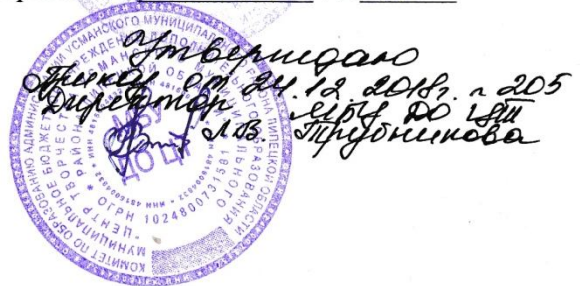 Утверждаю
Приказ от 24.12.2018г. № 205
Директор МБУ ДО ЦТ
Л.В. Трубникова
КОМИТЕТ ПО ОБРАЗОВАНИЮ АДМИНИСТРАЦИИ УСМАНСКОГО МУНИЦИПАЛЬНОГО РАЙОНА ЛИПЕЦКОЙ ОБЛАСТИ
МУНИЦИПАЛЬНОЕ БЮДЖЕТНОЕ
ОГРН 1024800731581
МБУ
ДО ЦТ